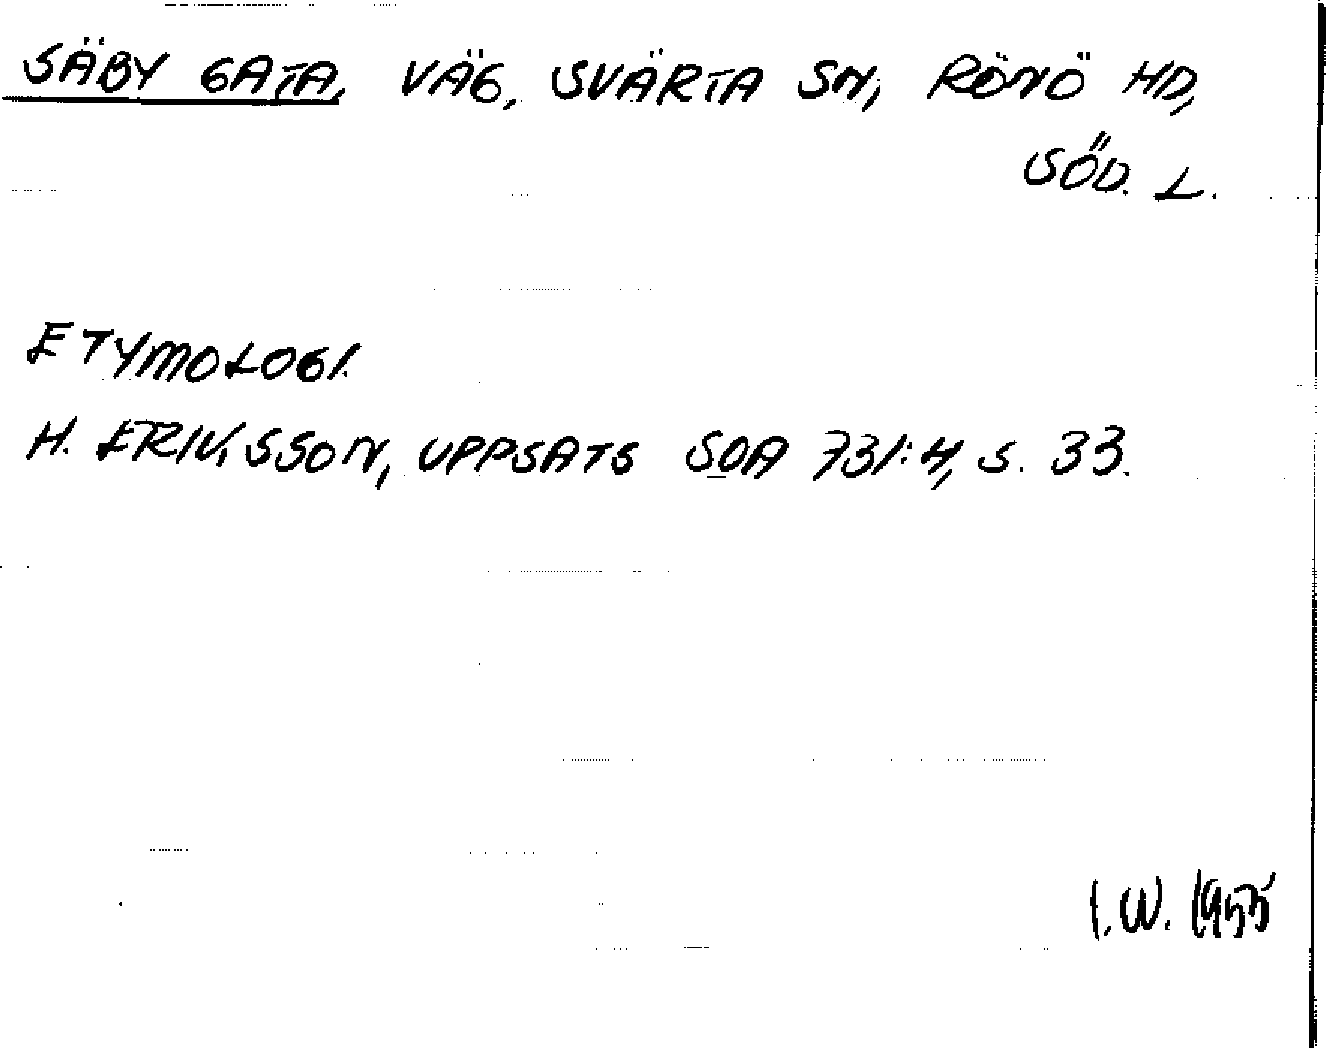 SÄBY GATA, VÄG, SVÄRTA SN, RÖNÖ HD,
SÖD. L.
ETYMOLOGI.
H. ERIKSSON, UPPSATS SOA 731:4, S. 33.
I.W. 1955